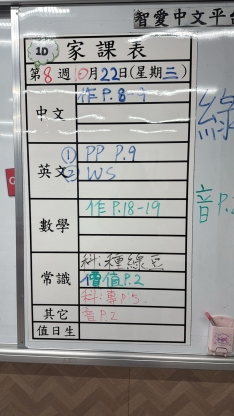 智愛中文平台
1D 家課表
第8週 10月22日(星期三)
中文 作 P.8-9
英文 ① PP P.9
② WS
數學 作 P.18-19
常識 科:種綠豆
價值 P.2
科:專 P.5
其它 音 P.2
值日生
綠
音 P.2